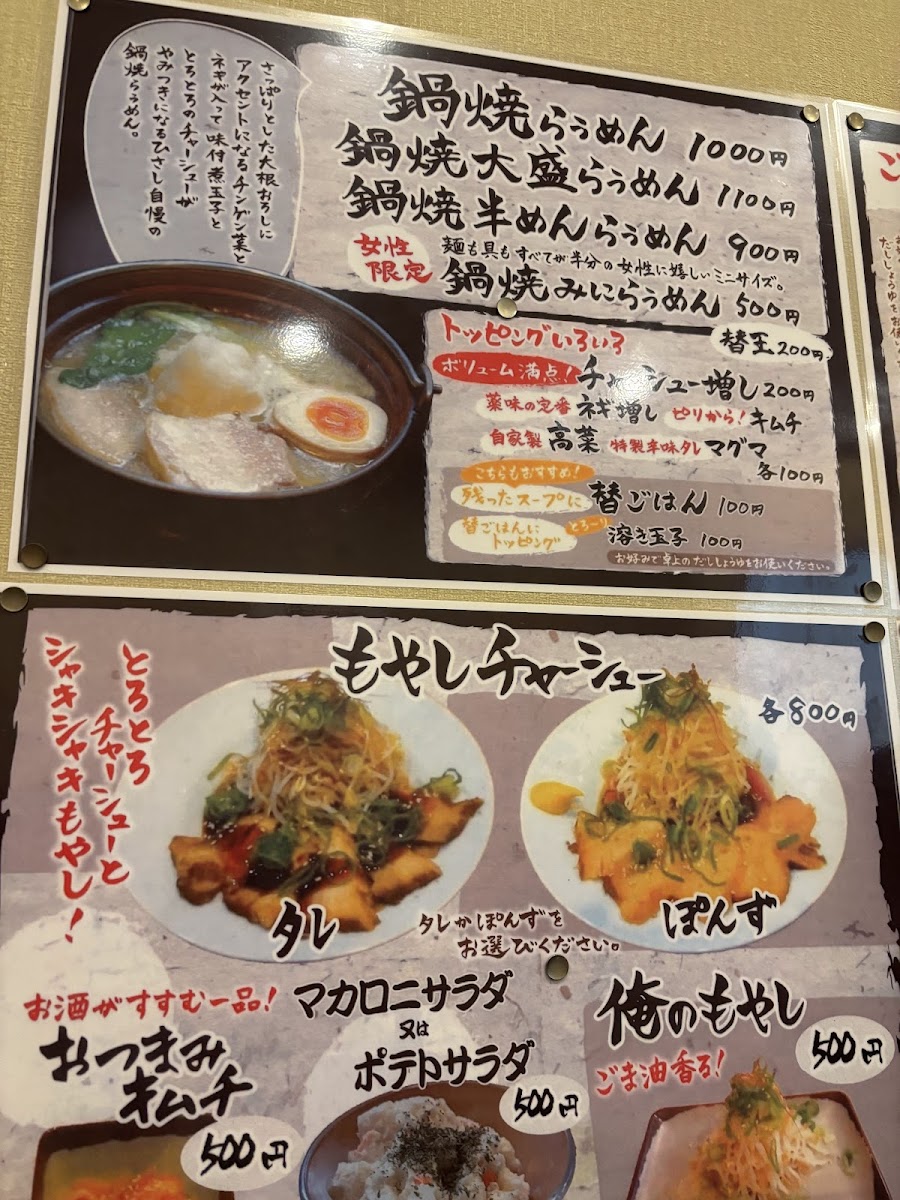 さっぱりとした大根おろしに
アクセントになるチンゲン菜と
ネギが入って味付煮玉子と
とろとろのチャーシューが
やみつきになるひさし自慢の
鍋焼らぅめん。
鍋焼らぅめん 1000円
鍋焼大盛らぅめん 1100円
鍋焼半めんらぅめん 900円
女性限定
麺も具もすべてが半分の女性に嬉しいミニサイズ。
鍋焼みにらぅめん 500円
トッピングいろいろ
替玉200円
ボリューム満点! チャーシュー増し200円
薬味の定番 ネギ増し ピリから! キムチ
自家製 高菜 特製辛味タレ マグマ
各100円
こちらもおすすめ!
残ったスープに 替ごはん 100円
替ごはんに
トッピング
とろ〜り 溶き玉子 100円
お好みで卓上のだししょうゆをお使いください。
もやしチャーシュー
各800円
とろとろ
チャーシューと
シャキシャキもやし!
タレ
タレかぽんずを
お選びください。
ぽんず
お酒がすすむ一品!
おつまみ
キムチ
500円
マカロニサラダ
又は
ポテトサラダ
500円
俺のもやし
ごま油香る!
500円
ご